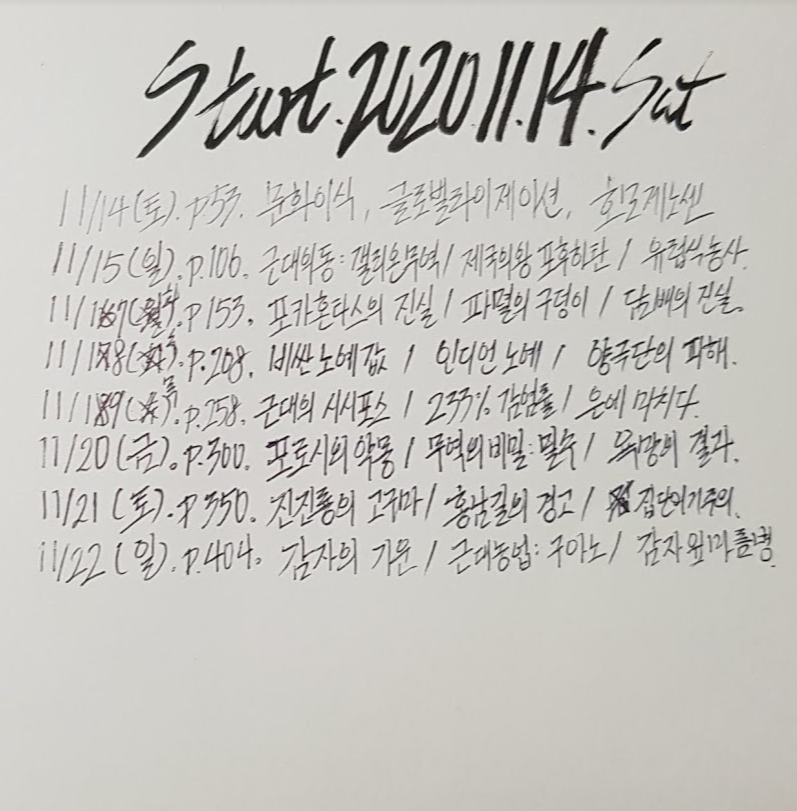 Start.2020.11.14.Sat
11/14(토).p53. 문화이식, 글로벌라이제이션, 호모제노센
11/15(일).p.106. 근대의동:갤리온무역/ 제국의왕 포후하탄 / 유럽식농사.
11/17(화).p153. 포카혼타스의 진실 / 파멸의 구덩이 / 담배의 진실.
11/18(수).p.208. 비싼노예값 / 인디언 노예 / 양극단의 피해.
11/19(목).p.258. 근대의 시시포스 / 233% 감염률 / 은에 미치다.
11/20(금).p.300. 포토시의악몽 / 무역의비밀:밀수 / 욕망의 결과.
11/21(토).p350. 진진룡의 고구마/ 홍남길의 경고 / 집단이기주의.
11/22(일).p.404. 감자의 기운 / 근대농업:구아노/ 감자잎마름병.